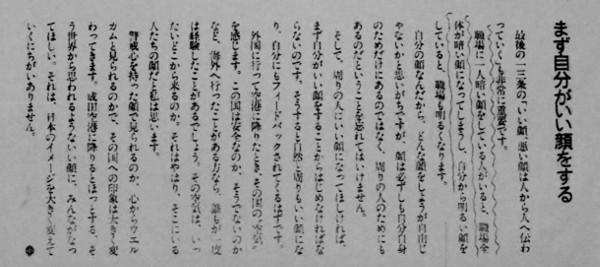 まず自分がいい顔をする
最後の一三条の、「いい顔、悪い顔は人から人へ伝わ
っていく」も非常に重要です。
職場に一人暗い顔をしている人がいると、職場全
体が暗い顔になってしまうし、自分から明るい顔を
していると、職場も明るくなります。
自分の顔なんだから、どんな顔をしようが自由じ
ゃないかと思いがちですが、顔は必ずしも自分自身
のためだけにあるのではなく、周りの人のためにも
あるのだということを忘れてはいけません。
そして、周りの人にいい顔になってほしければ、
まず自分がいい顔をすることからはじめなければな
らないのです。そうすると自然と周りもいい顔にな
り、自分にもフィードバックされてくるはずです。
外国に行って空港に降りたとき、その国の〝空気〟
を感じます。この国は安全なのか、そうでないのか
など、海外へ行ったことがある方なら、誰もが一度
は経験したことがあるでしょう。その空気は、いっ
たいどこから来るのか。それはやはり、そこにいる
人たちの顔だと私は思います。
警戒心を持った顔で見られるのか、心からウエル
カムと見られるのかで、その国への印象は大きく変
わってきます。成田空港に降りるとほっとする、そ
う世界から思われるようないい顔に、みんながなっ
てほしい。それは、日本のイメージを大きく変えて
いくにちがいありません。